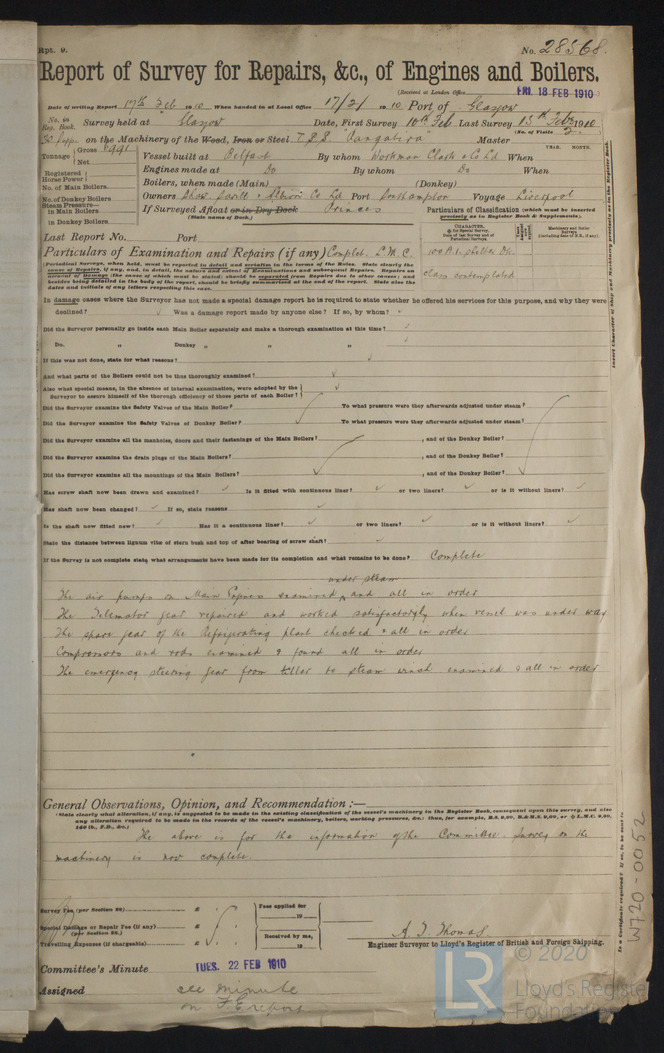 Rpt. 9.
No. 28568.
Report of Survey for Repairs, &c., of Engines and Boilers.
(Received at London Office FRI. 18 FEB 1910)
Date of writing Report 17th Feb 1910 When handed in at Local Office 17/2/1910 Port of Glasgow
No. in Reg. Book. Survey held at Glasgow Date, First Survey 10th Feb Last Survey 15th Feb 1910
(No. of Visits 2.)
on the Machinery of the Wood, Iron or Steel T.S.S. Master
YEAR. MONTH.
Tonnage Gross Net
Vessel built at Belfast By whom Workman Clark & Co Ld When
Registered Horse Power
Engines made at Do By whom Do When
No. of Main Boilers
Boilers, when made (Main) (Donkey)
No. of Donkey Boilers
Owners Shaw Savill & Albion Co Ld Port Southampton Voyage Liverpool
Steam Pressure in Main Boilers
in Donkey Boilers
If Surveyed Afloat or in Dry Dock Princes
(State name of Dock.)
Particulars of Classification (which must be inserted precisely as in Register Book & Supplements).
Last Report No. Port
Particulars of Examination and Repairs (if any) Complet. L.M.C.
100 A.1. Shelter Dk.
class contemplated
In damage cases where the Surveyor has not made a special damage report he is required to state whether he offered his services for this purpose, and why they were
declined? Was a damage report made by anyone else? If so, by whom?
Did the Surveyor personally go inside each Main Boiler separately and make a thorough examination at this time?
Do. „ Donkey „ „ „
If this was not done, state for what reasons?
And what parts of the Boilers could not be thus thoroughly examined?
Also what special means, in the absence of internal examination, were adopted by the
Surveyor to assure himself of the thorough efficiency of those parts of each Boiler?
Did the Surveyor examine the Safety Valves of the Main Boiler? To what pressure were they afterwards adjusted under steam?
Did the Surveyor examine the Safety Valves of Donkey Boiler? To what pressure were they afterwards adjusted under steam?
Did the Surveyor examine all the manholes, doors and their fastenings of the Main Boilers? , and of the Donkey Boiler?
Did the Surveyor examine the drain plugs of the Main Boilers? , and of the Donkey Boiler?
Did the Surveyor examine all the mountings of the Main Boilers? , and of the Donkey Boiler?
Has screw shaft now been drawn and examined? Is it fitted with continuous liner? or two liners? or is it without liners?
Has shaft now been changed? If so, state reasons
Is the shaft now fitted new? Has it a continuous liner? or two liners? or is it without liners?
State the distance between lignum vitæ of stern bush and top of after bearing of screw shaft?
If the Survey is not complete state what arrangements have been made for its completion and what remains to be done? Complete
under steam
The air pumps on Main Engines examined and all in order
The Telemotor gear repaired and worked satisfactorily when vessel was under way
The spare gear of the Refrigerating plant checked & all in order
Compressors and rods examined & found all in order
The emergency steering gear from tiller to steam winch examined & all in order
General Observations, Opinion, and Recommendation :—
The above is for the information of the Committee. Survey on the
machinery is now complete.
Survey Fee (per Section 28) £
Special Damage or Repair Fee (if any) £
(per Section 28.)
Travelling Expenses (if chargeable) £
Fees applied for
19
Received by me,
19
A. T. Thomas
Engineer Surveyor to Lloyd's Register of British and Foreign Shipping.
Committee's Minute TUES. 22 FEB 1910
Assigned see minute
on F.E report
W720-0052
LR
© 2020
Lloyd's Register
Foundation